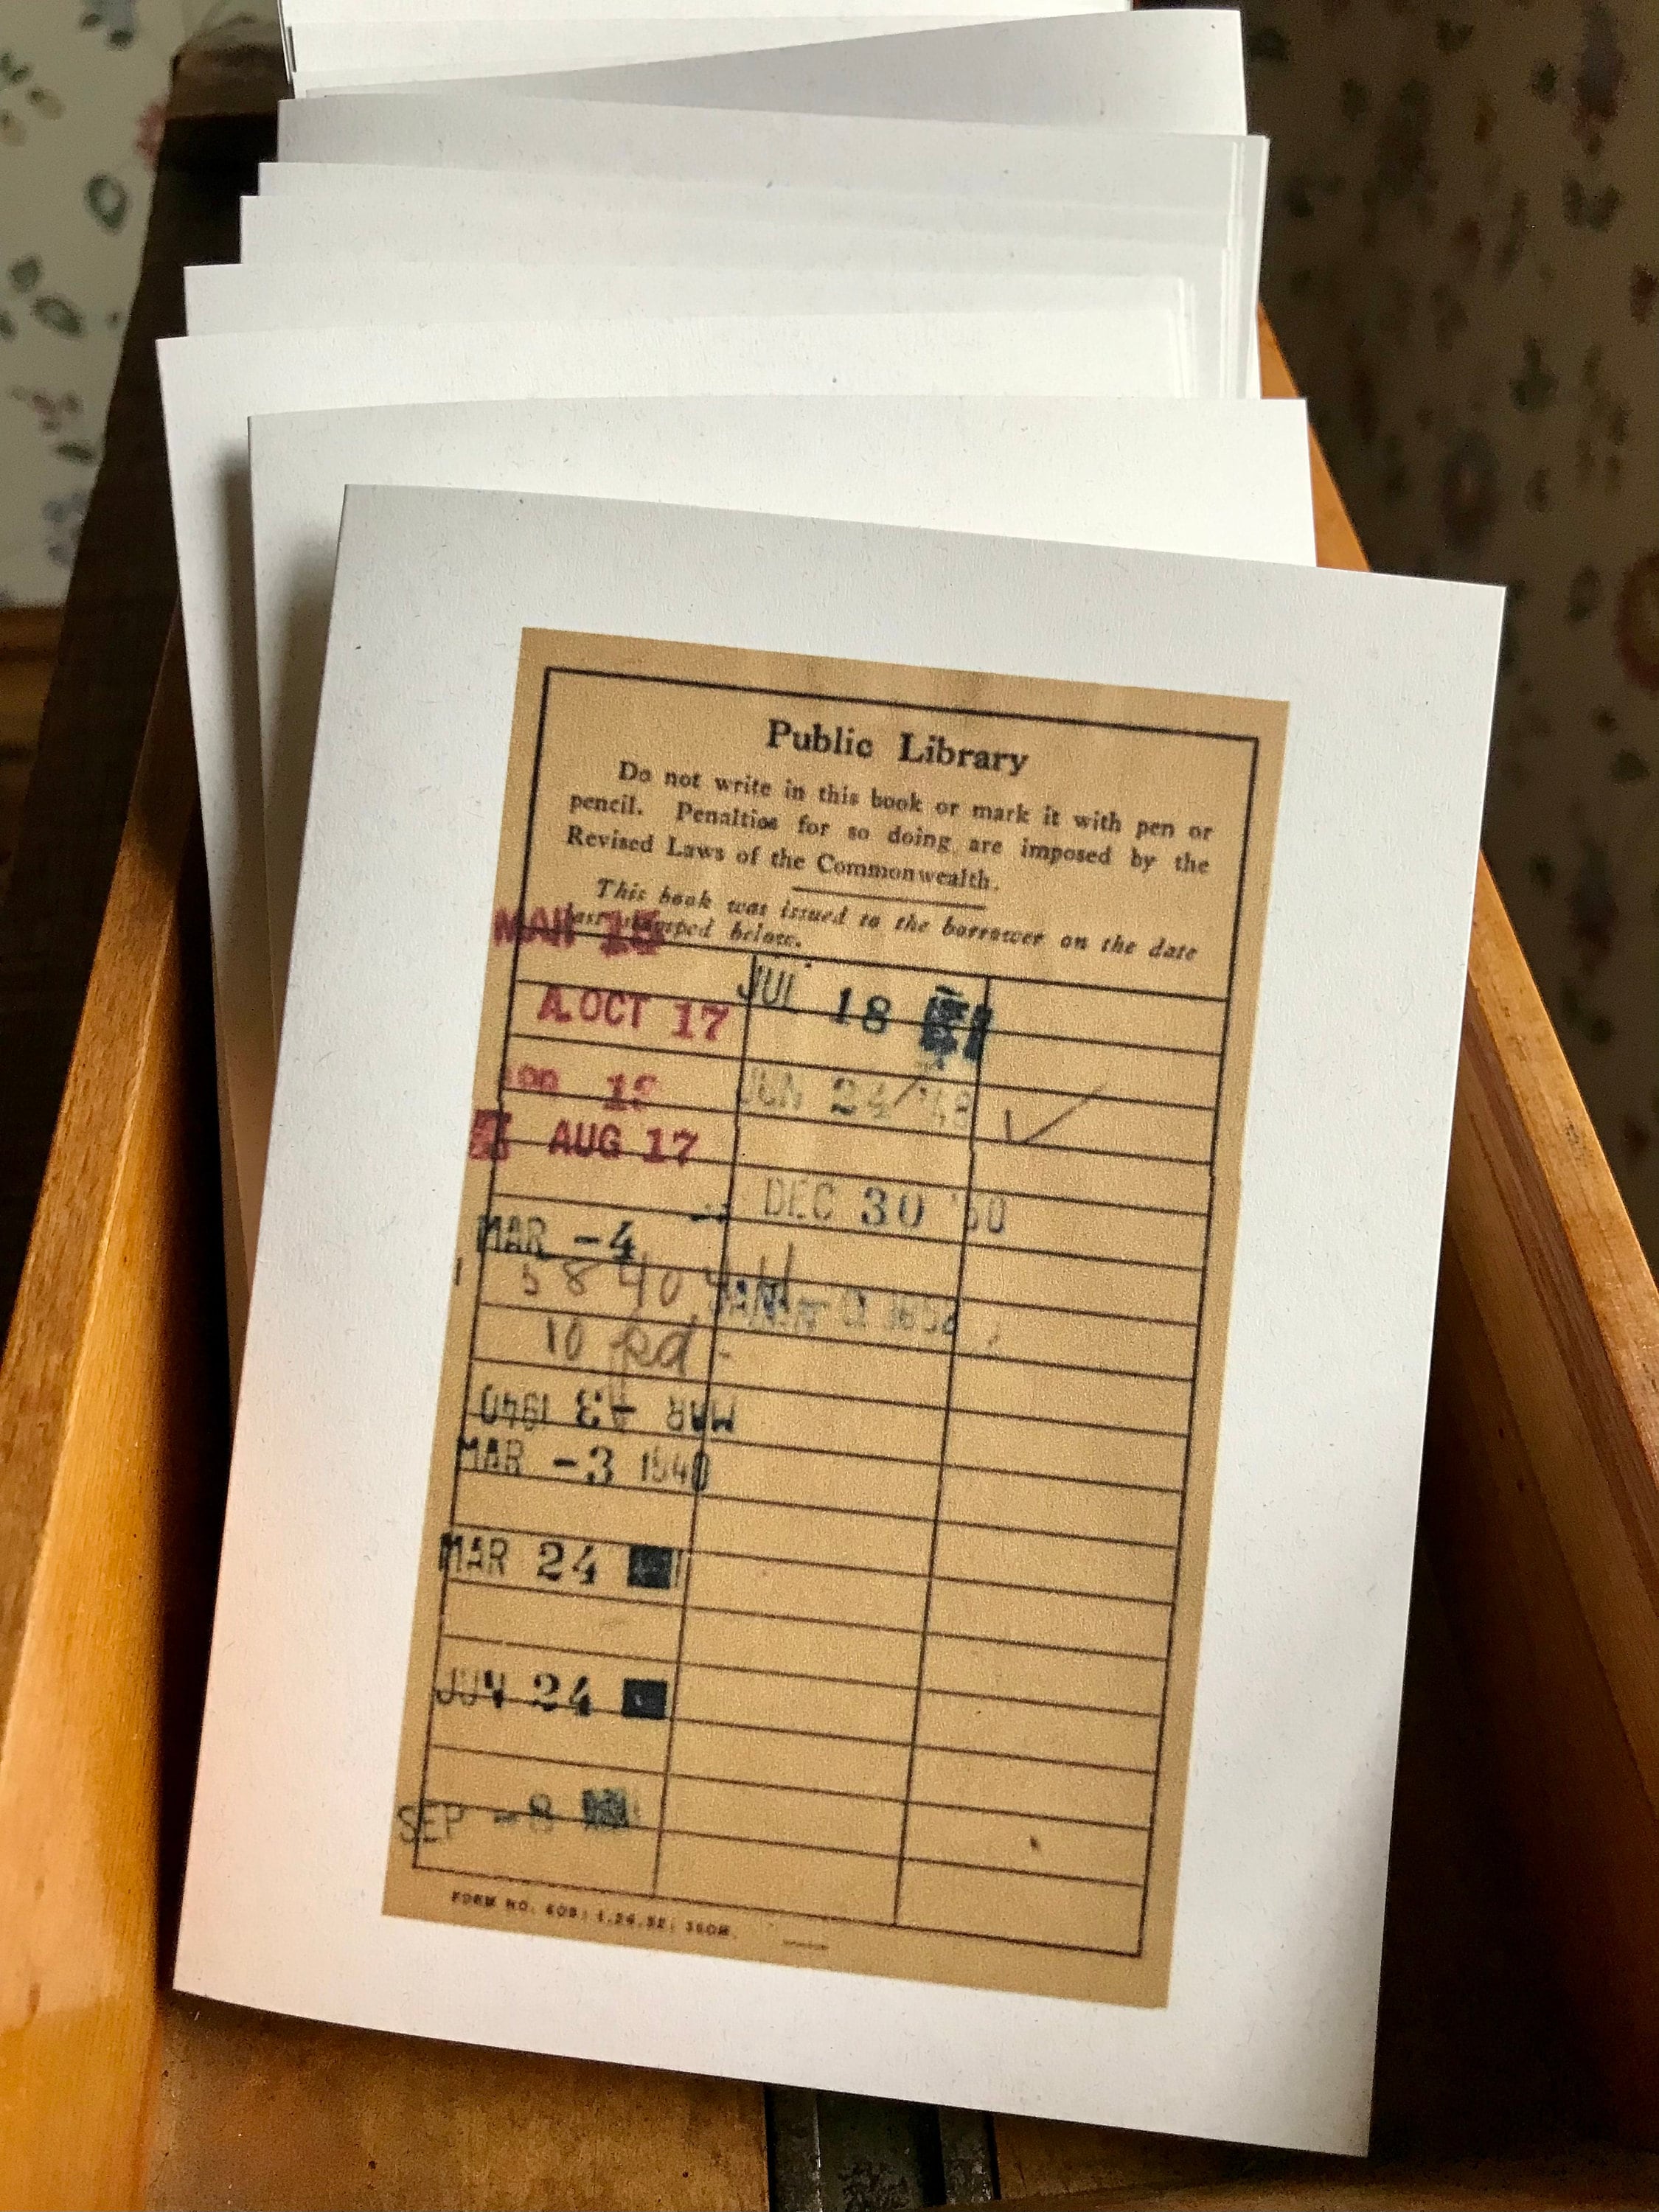 Public Library
Do not write in this book or mark it with pen or
pencil. Penalties for so doing are imposed by the
Revised Laws of the Commonwealth.
This book was issued to the borrower on the date
last stamped below.
A. OCT 17
AUG 17
MAR -4
5 8 40
10 pd
MAR -3 1940
MAR -3 1940
MAR 24
JUN 24
SEP -8
JUL 18
JUN 24 '48
DEC 30 '50
FORM NO.